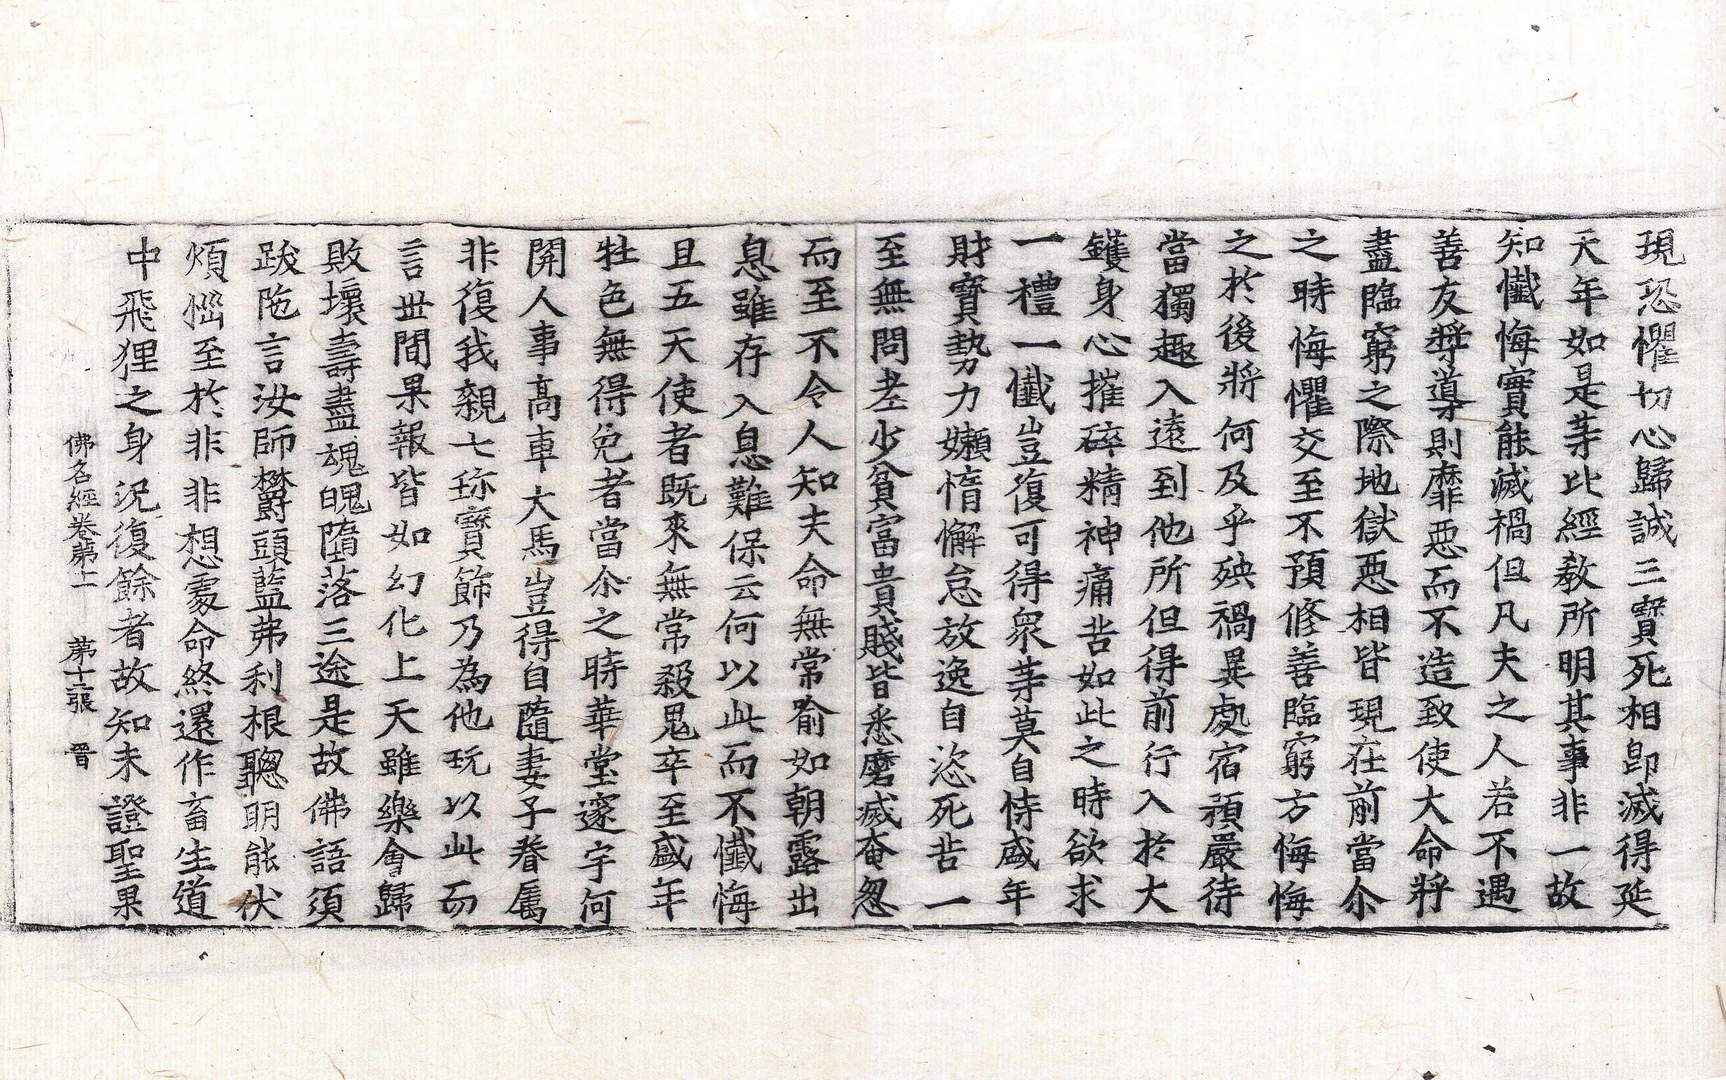 現恐懼切心歸誠三寶死相卽滅得延
天年如是等比經教所明其事非一故
知懺悔實能滅禍但凡夫之人若不遇
善友奬導則靡惡而不造致使大命將
盡臨窮之際地獄惡相皆現在前當尒
之時悔懼交至不預修善臨窮方悔悔
之於後將何及乎殃禍異處宿預嚴待
當獨趣入遠到他所但得前行入於大
鑊身心摧碎精神痛苦如此之時欲求
一禮一懺豈復可得衆等莫自恃盛年
財寶勢力嬾惰懈怠放逸自恣死苦一
至無問老少貧富貴賤皆悉磨滅奄忽
而至不令人知夫命無常喻如朝露出
息雖存入息難保云何以此而不懺悔
且五天使者旣來無常殺鬼卒至盛年
牡色無得免者當尒之時華堂邃宇何
開人事高車大馬豈得自隨妻子眷屬
非復我親七珎寶飾乃為他玩以此而
言世間果報皆如幻化上天雖樂會歸
敗壞壽盡魂魄墮落三途是故佛語須
跋陁言汝師欝頭藍弗利根聰明能伏
煩惱至於非非想處命終還作畜生道
中飛狸之身況復餘者故知未證聖果
佛名經卷第十一 第十二張 晉